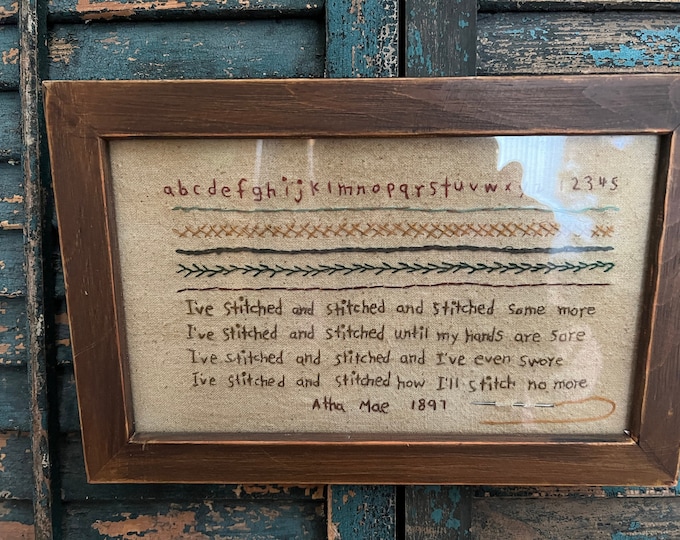 abcdefghijklmnopqrstuvwx 12345
I've stitched and stitched and stitched some more
I've stitched and stitched until my hands are sore
I've stitched and stitched and I've even swore
I've stitched and stitched how I'll stitch no more
Atha Mae 1897